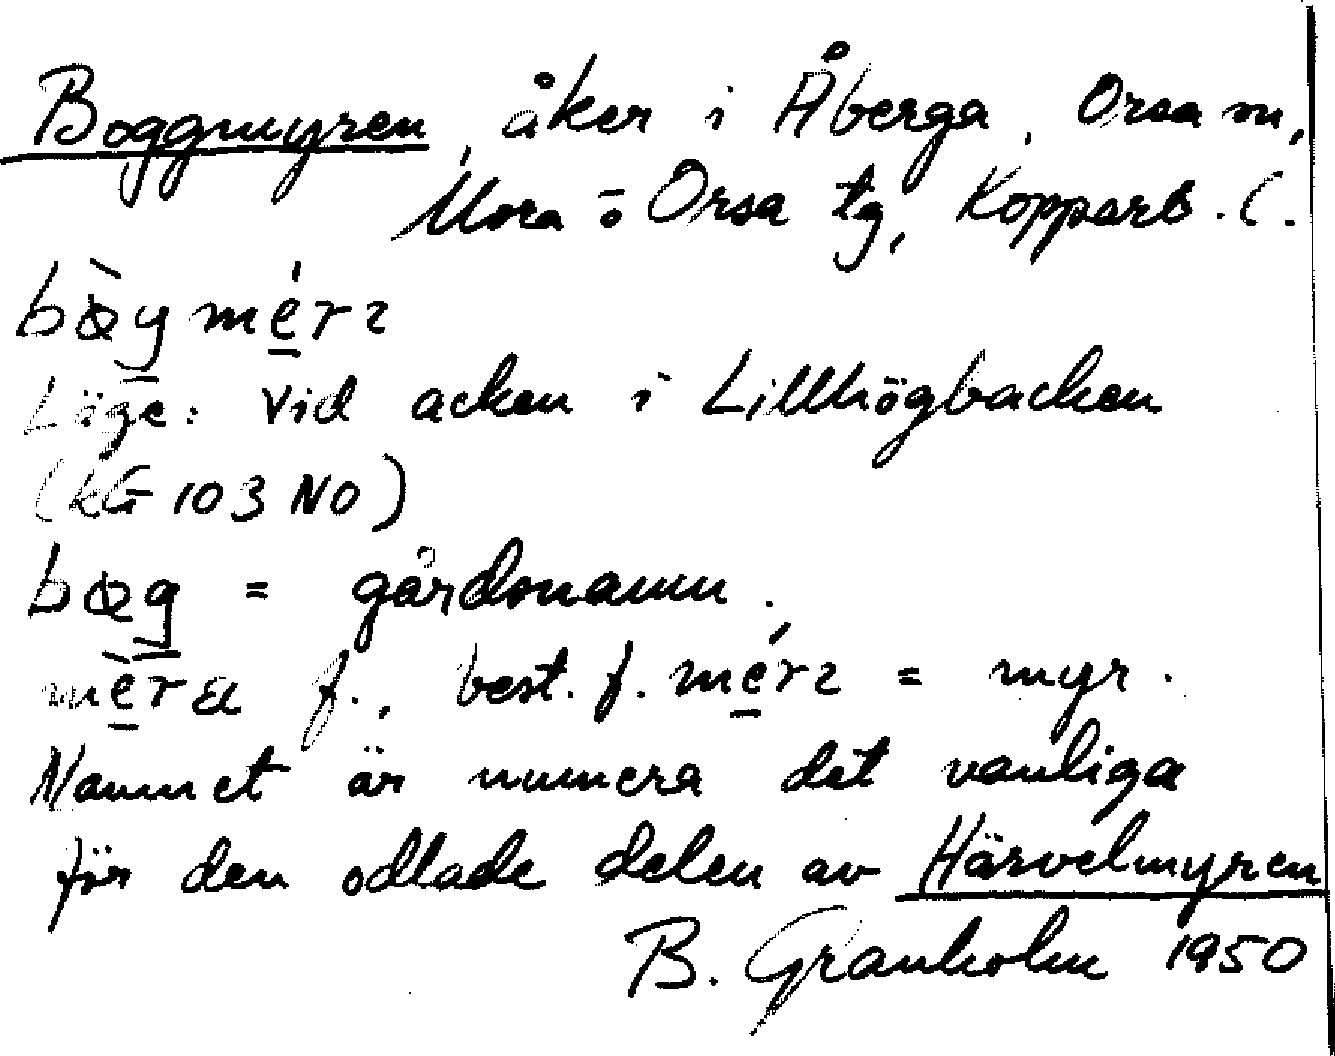 Boggmyren, åker i Åberga, Orsa sn,
Mora o Orsa tg, Kopparb. l.
Läge: vid acken i Lillhögbacken
(kG 103 NO)
= gårdsnamn.
f., best. f. = myr.
Namnet är numera det vanliga
för den odlade delen av Härvelmyren
B. Granholm 1950